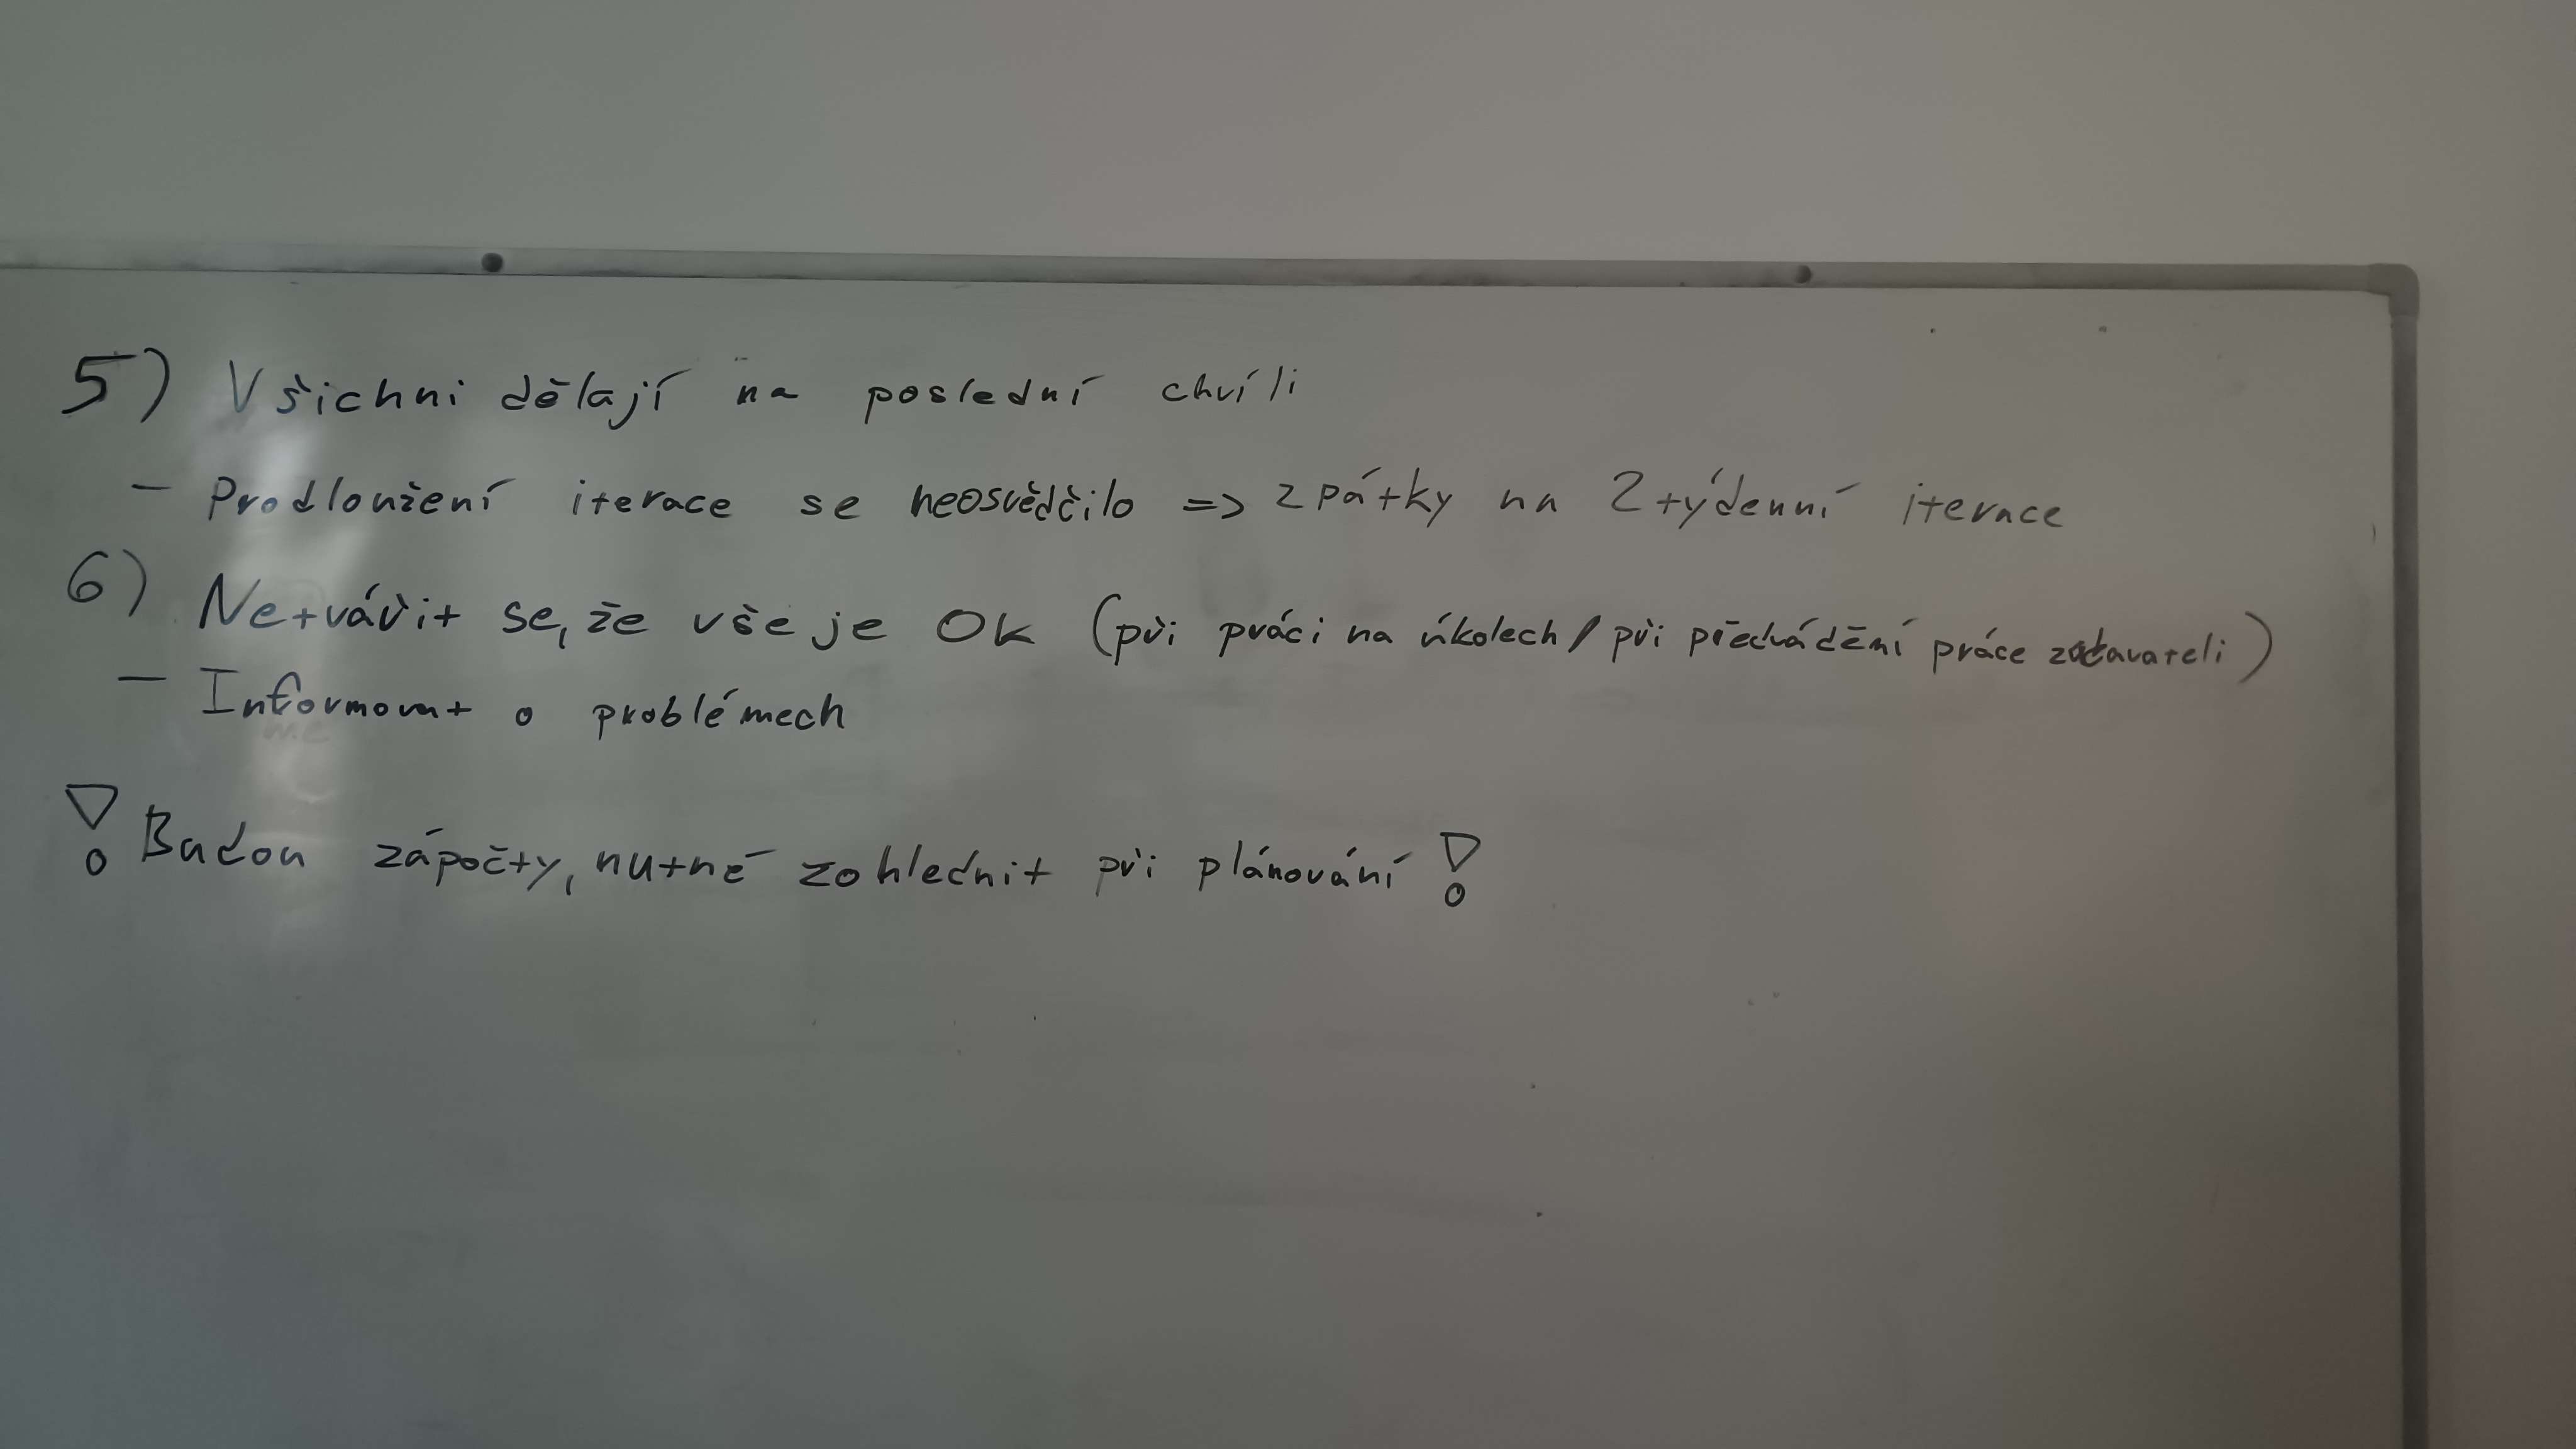 5) Všichni dělají na poslední chvíli
- Prodloužení iterace se neosvědčilo => zpátky na 2týdenní iterace
6) Netvářit se, že vše je OK (při práci na úkolech / při předvádění práce zadavateli)
- Informovat o problémech
! Budou zápočty, nutné zohlednit při plánování !